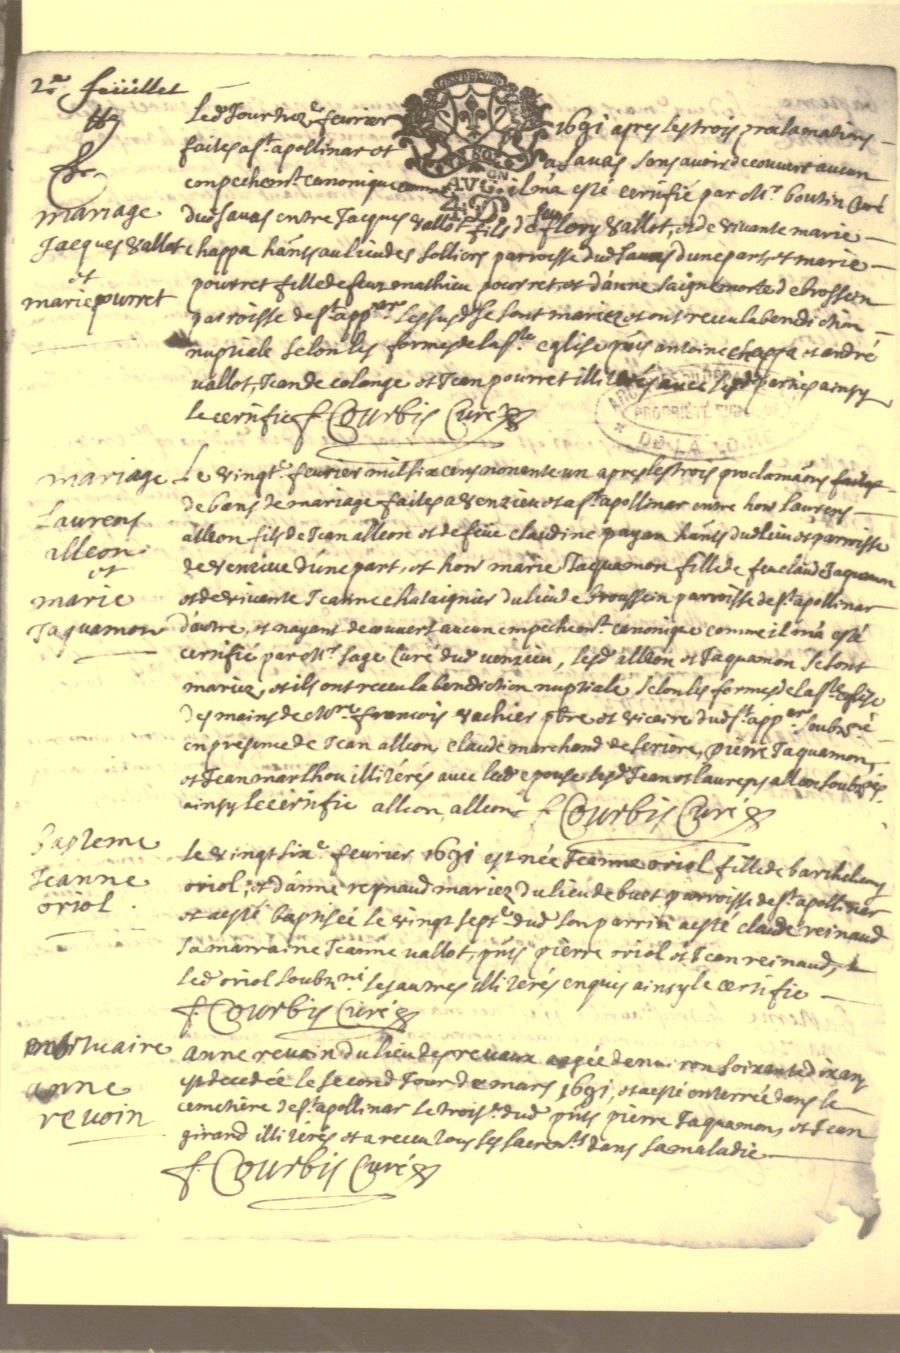 2e feuillet
Led Jour treze fevrier 1691 apres les trois proclamations
faites a st apollinar et a Savas sans avoir decouvert aucun
empechemt canonique comme il m'a esté certifié par Mr boutin Curé
mariage
Jacques vallot
et
marie pourret
dud Savas entre Jacques vallot fils de feu flory vallot, et de vivante marie
chappa hants au lieu des Solliers parroisse dud Savas d'une part et marie
pourret fille de feu mathieu pourret, et d'anne Saignemorte de brossein
parroisse de st appre Lesusd se sont mariez et ont receu la benediction
nuptiale selon les formes de la ste eglise pnts antoine chappa et andré
vallot, Jean de colange et Jean pourret illiterés avec lesd parties ainsy
le certifie f Courbis Curé
AVG ON
ARCHIVES DU DEPARTEMENT
PROPRIÉTÉ PUBLIQUE
DE LA LOIRE
mariage
Laurens
alleon
et
marie
Jaquamon
Le vingte fevrier mil six cens nonente un apres les trois proclamaons faites
de bans de mariage faites a venzieu et a st apollinar entre hon Laurens
alleon fils de Jean alleon et de feüe claudine payan hants dud lieu et parroisse
de venzieu d'une part, et hon marie Jaquamon fille de feu claude Jaquamon
et de vivante Jeanne chataignier du lieu de broussein parroisse de st apollinar
d'autre, et n'ayant decouvert aucun empechemt canonique comme il m'a esté
certifié par Mr Sage Curé dud venzieu, lesd alleon et Jaquamon se sont
mariez, et ils ont receu la benediction nuptiale selon les formes de la ste eglise
des mains de Mre francois vachier pbre et vicaire dud st appre soubzné
en presence de Jean alleon, claude marchand de seriere, pierre Jaquamon,
et Jean marthou illiterés avec lad epouse lesd Jean et laurens alleon soubznés
ainsy le certifie alleon, alleon f Courbis Curé
Bapteme
Jeanne
oriol
le vingt sixe fevrier 1691 est née Jeanne oriol fille de barthelemy
oriol, et d'anne reynaud mariez du lieu de buet parroisse de st apollinar
et a esté baptisée le vingt septe dud son parrin a esté claude reinaud
sa marraine Jeanne vallot, pnts pierre oriol et Jean reinaud,
led oriol soubzné les autres illiterés enquis ainsy le certifie
f. Courbis Curé
mortuaire
anne
revoin
anne revoin du lieu des prevaux aagée de environ soixante dix ans
est decedée le second Jour de mars 1691, et a esté enterrée dans le
cemetière de st apollinar le troise dud pnts pierre Jaquamon, et Jean
girand illiterés et a receu tous les sacremts dans sa maladie
f. Courbis Curé